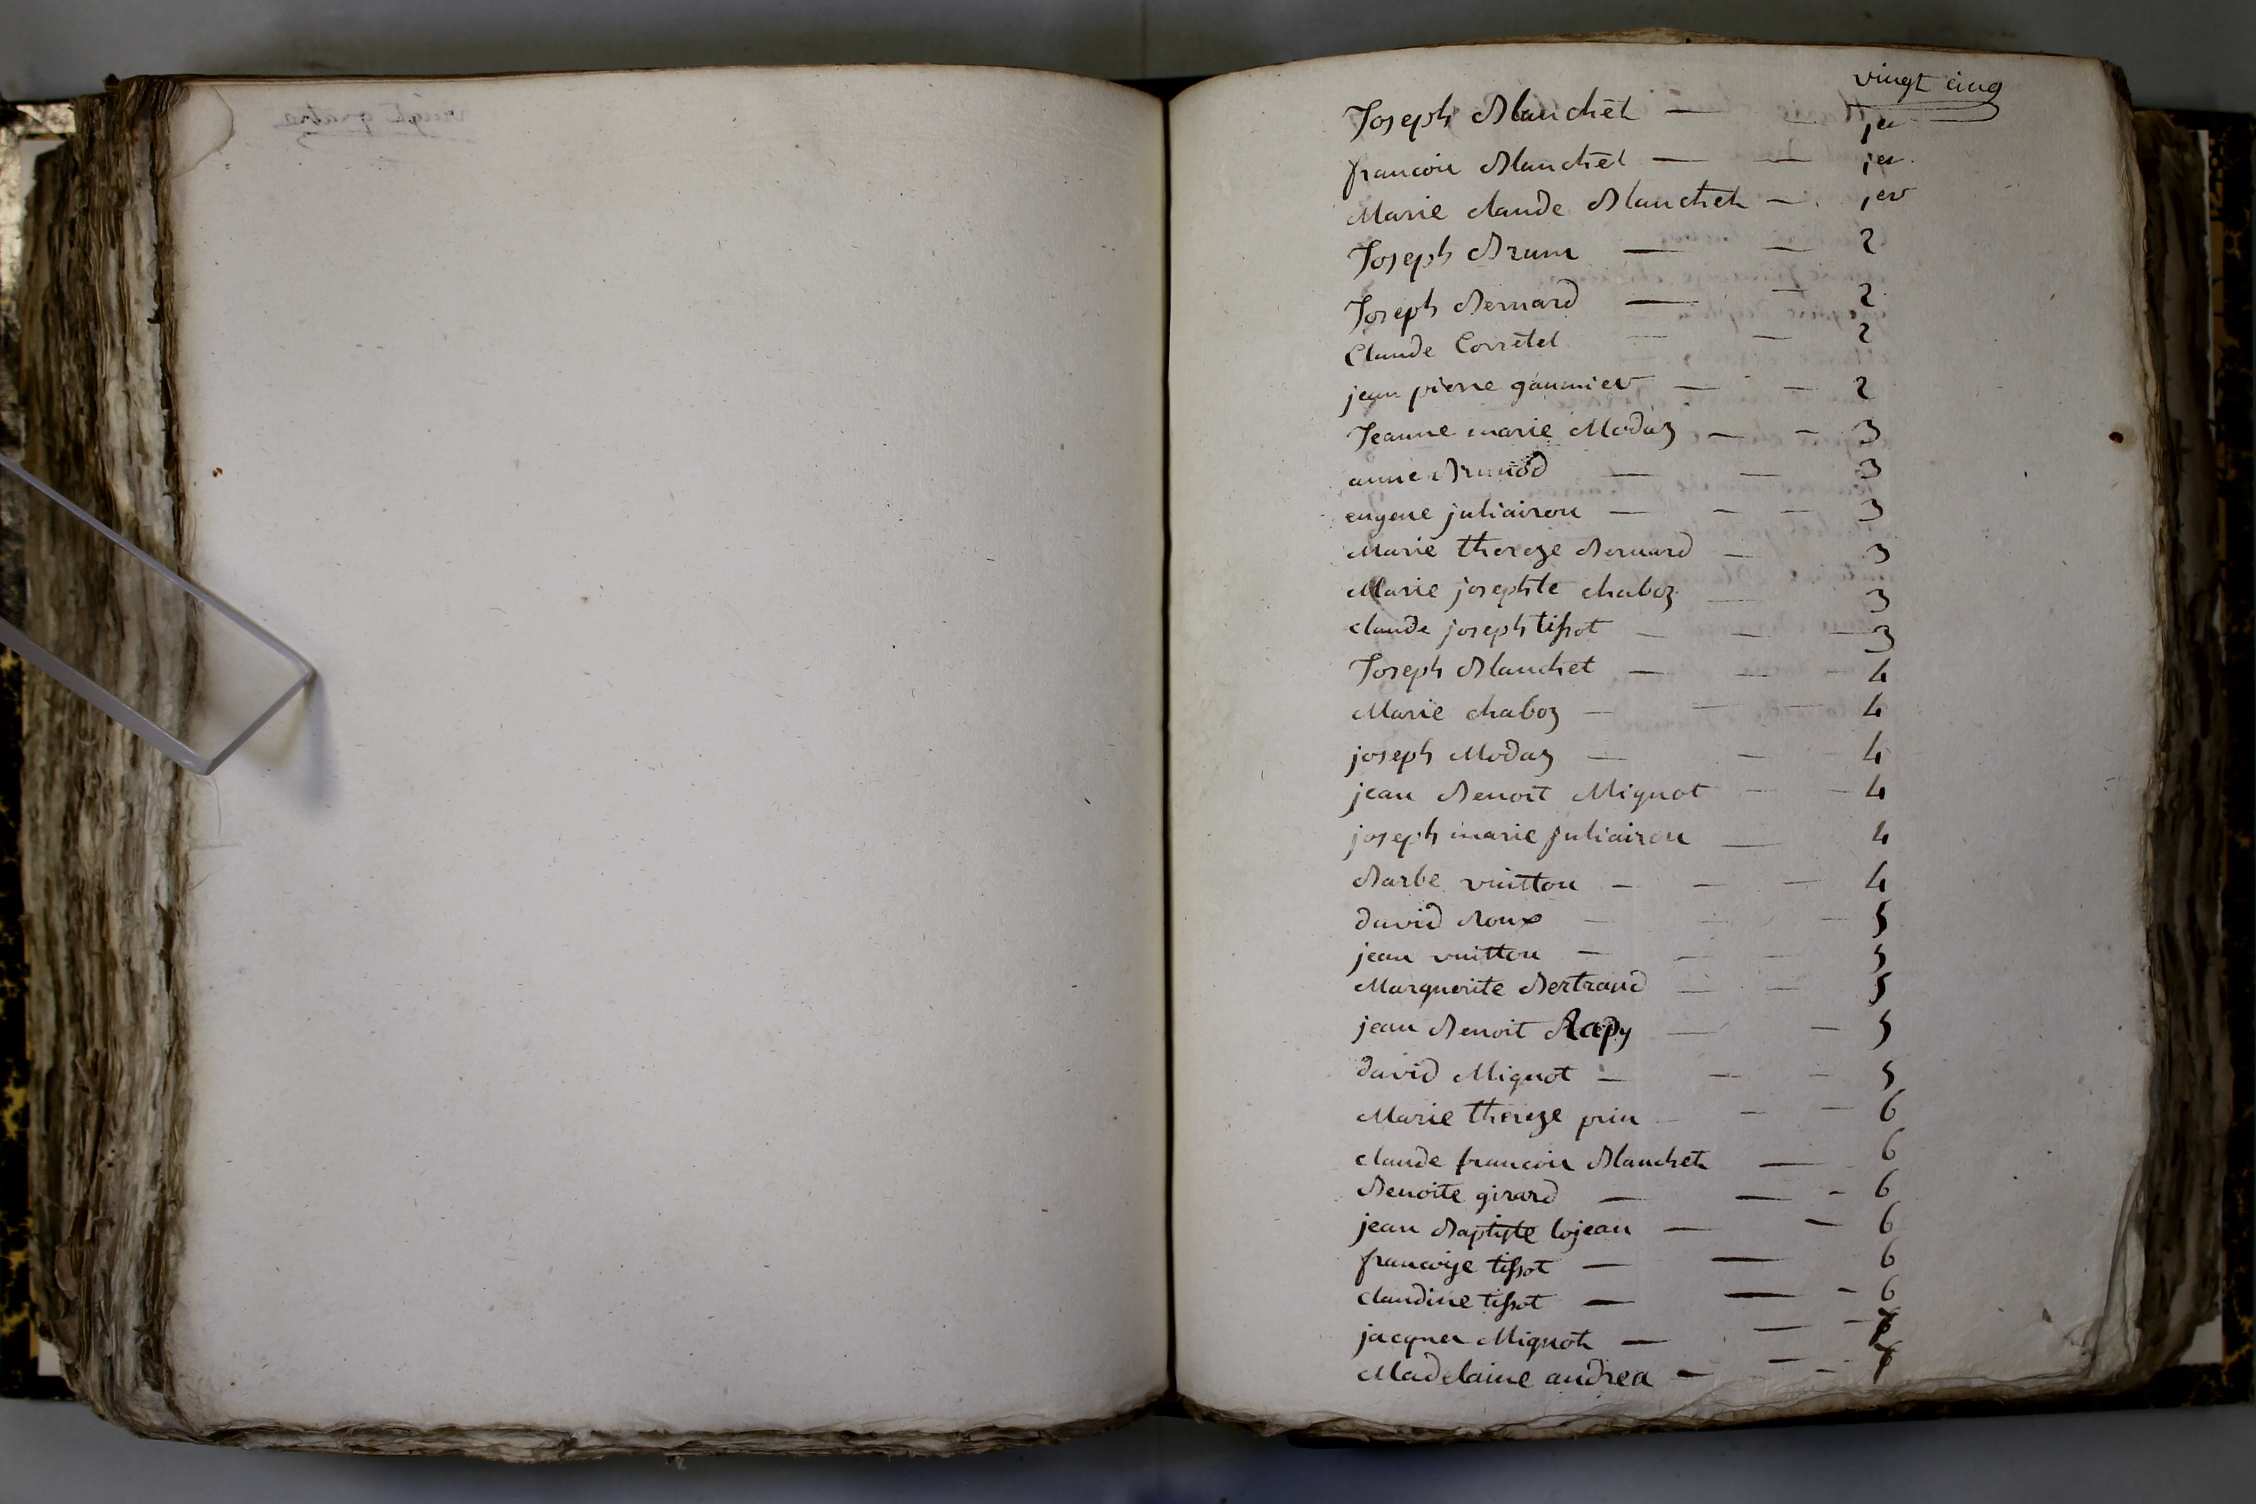 vingt quatre
vingt cinq
Joseph Blanchet — — jer
francois Blanchet — — jer
Marie claude Blanchet — jer
Joseph Brun — — 2
Joseph Bernard — — 2
Claude Corretel — — 2
jean pierre gaumier — — 2
Jeanne marie Modaz — — 3
anne Brunod — — 3
eugene juliairon — — — 3
Marie thereze Bernard — 3
Marie josephte chaboz — 3
claude joseph tissot — — — 3
Joseph Blanchet — — — 4
Marie chaboz — — — 4
joseph Modaz — — — 4
jean Benoit Mignot — — 4
joseph marie juliairon — 4
Barbe vuitton — — — 4
david Roux — — — 5
jean vuitton — — — 5
Marguerite Bertrand — — 5
jean Benoit Rapy — — 5
david Mignot — — — 5
Marie thereze prin — — — 6
claude francois Blanchet — — 6
Benoite girard — — — 6
jean Baptiste lojean — — 6
francoise tissot — — 6
claudine tissot — — — 6
jacques Mignot — — — 7
Madelaine andrea — — — 7